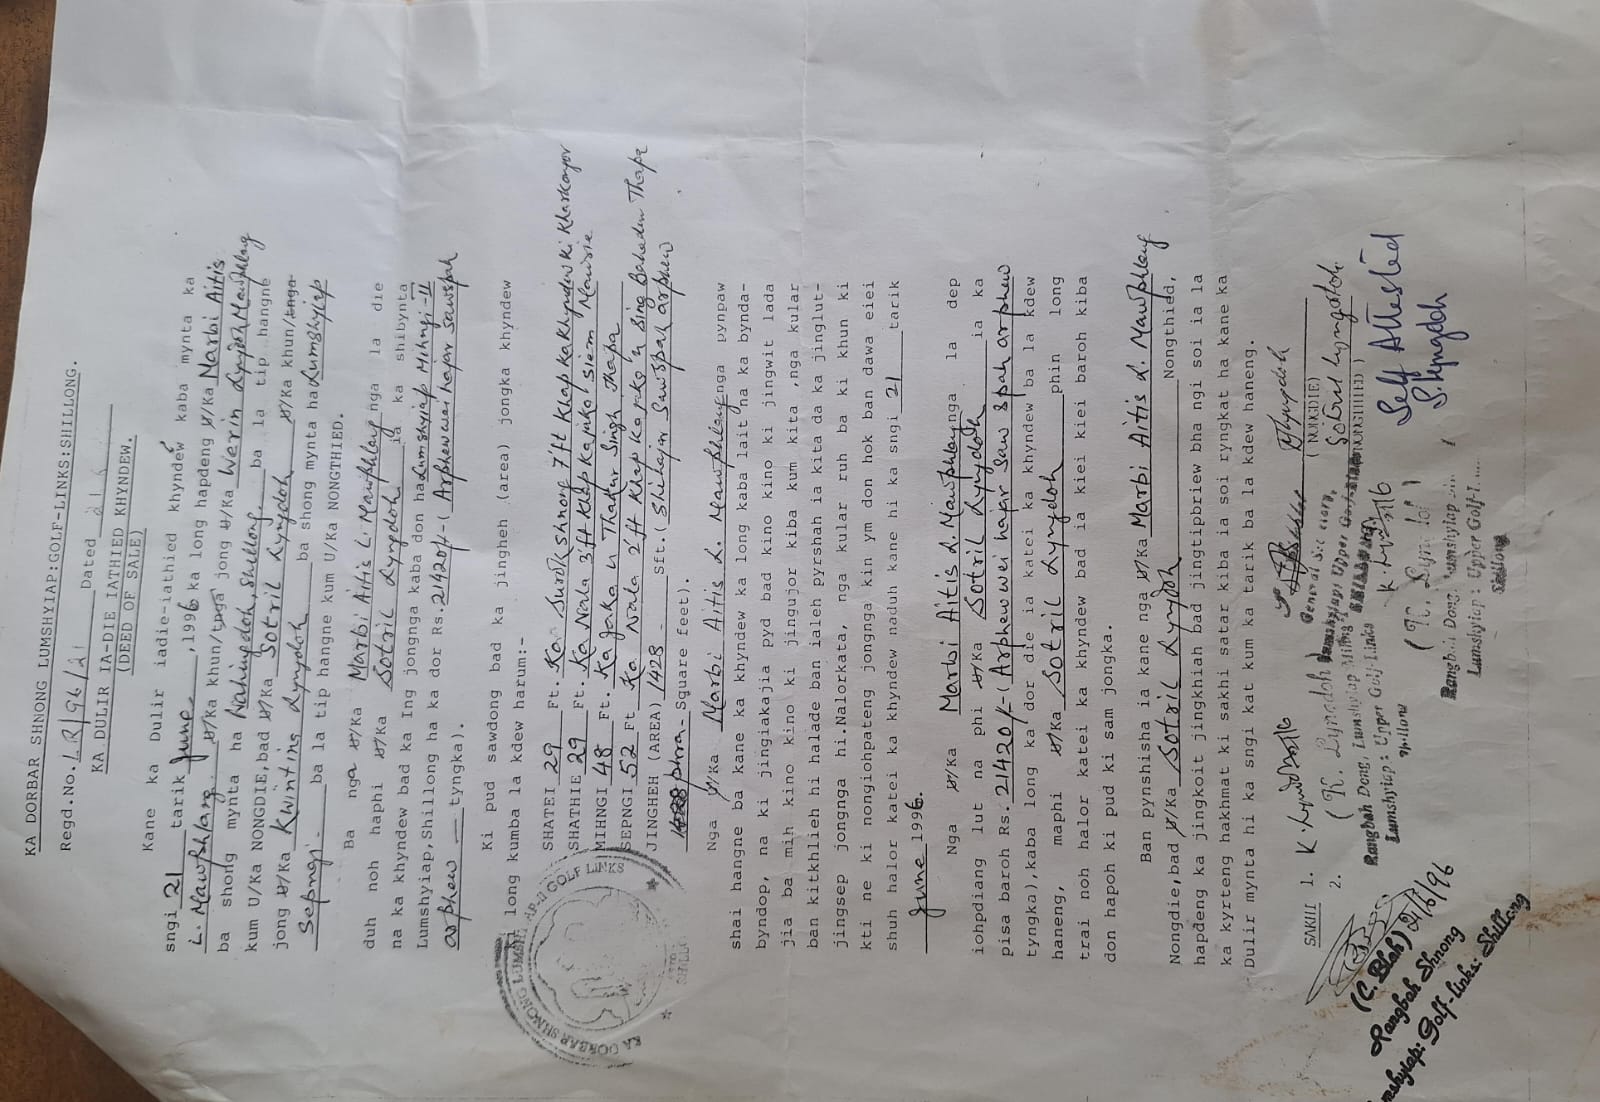 KA DORBAR SHNONG LUMSHYIAP:GOLF-LINKS:SHILLONG.
Regd.No. LR/96/21 Dated 21 6
KA DULIR IA-DIE IATHIED KHYNDEW.
(DEED OF SALE)
Kane ka Dulir iadie-iathied khyndew kaba mynta ka
sngi 21 tarik June ,1996 ka long hapdeng U/Ka Marbi Aitis
L. Mawphlang. U/Ka khun/tnga jong U/Ka Werin Lyndoh Mawphlang
ba shong mynta ha Nahingdoh, Shillong. ba la tip hangne
kum U/Ka NONGDIE,bad U/Ka Sotril Lyngdoh U/Ka khun/tnga
jong U/Ka Kwinting Lyngdoh ba shong mynta ha Lumshyiap
Sepngi - ba la tip hangne kum U/Ka NONGTHIED.
Ba nga U/Ka Marbi Aitis L. Mawphlang nga la die
duh noh haphi U/Ka Sotril Lyngdoh ia ka shibynta
na ka khyndew bad ka Ing jongnga kaba don ha Lumshyiap Mihngi-II
Lumshyiap,Shillong ha ka dor Rs. 21420/- ( Arphewwei hajar sawspah
arphew tyngka).
Ki pud sawdong bad ka jingheh (area) jongka khyndew
ki long kumba la kdew harum:-
SHATEI 29 Ft. Ka Surok shnong 7'ft Khap ka Khyndew ki Kharkongor
SHATHIE 29 Ft. Ka Nala 3'ft Khap Kajinko siem Mawsie
MIHNGI 48 Ft. Ka Jaka u Thakur Singh Thapa
SEPNGI 52 Ft Ka Nala 2'ft Khap Ka jaka u Sing Bahadur Thapa
JINGHEH (AREA) 1428 - Sft. ( Shihajar Sawspah arphew
phra - Square feet).
Nga U/Ka Marbi Aitis L. Mawphlang nga pynpaw
shai hangne ba kane ka khyndew ka long kaba lait na ka bynda-
byndop, na ki jingiakajia pyd bad kino kino ki jingwit lada
jia ba mih kino kino ki jingujor kiba kum kita ,nga kular
ban kitkhlieh hi halade ban ialeh pyrshah ia kita da ka jinglut-
jingsep jongnga hi.Nalorkata, nga kular ruh ba ki khun ki
kti ne ki nongiohpateng jongnga kin ym don hok ban dawa eiei
shuh halor katei ka khyndew naduh kane hi ka sngi 21 tarik
June 1996.
Nga U/Ka Marbi Aitis L. Mawphlang nga la dep
iohpdiang lut na phi U/Ka Sotril Lyngdoh ia ka
pisa baroh Rs. 21420/- ( Arphewwei hajar saw spah arphew
tyngka),kaba long ka dor die ia katei ka khyndew ba la kdew
haneng, maphi U/Ka Sotril Lyngdoh phin long
trai noh halor katei ka khyndew bad ia kiei kiei baroh kiba
don hapoh ki pud ki sam jongka.
Ban pynshisha ia kane nga U/Ka Marbi Aitis L. Mawphlang
Nongdie,bad U/Ka Sotril Lyngdoh Nongthied,
hapdeng ka jingkoit jingkhiah bad jingtipbriew bha ngi soi ia la
ka kyrteng hakhmat ki sakhi satar kiba ia soi ryngkat ha kane ka
Dulir mynta hi ka sngi kat kum ka tarik ba la kdew haneng.
SAKHI 1.
2.
(R. Lyngdoh)
Rangbah Dong, Lumshyiap
Lumshyiap : Upper Golf Links
Shillong
General Secretary,
(NONGDIE)
(NONGTHIED)
(R. Lyngdoh)
Rangbah Dong, Lumshyiap
Lumshyiap : Upper Golf-L
Shillong
Self Attested
SLyngdoh
(C. Blah) 21/6/96
Rangbah Shnong
Lumshyiap: Golf-links: Shillong
KA DORBAR SHNONG LUMSHYIAP GOLF LINKS
SHILLONG